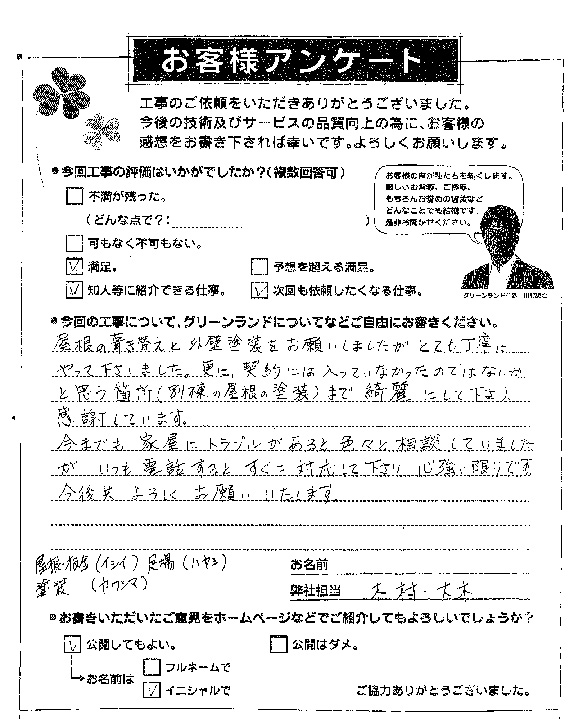 お客様アンケート
工事のご依頼をいただきありがとうございました。
今後の技術及びサービスの品質向上の為に、お客様の
感想をお書き下されば幸いです。よろしくお願いします。
今回工事の評価はいかがでしたか？（複数回答可）
不満が残った。
（どんな点で？：　）
可もなく不可もない。
満足。
予想を超える満足。
知人等に紹介できる仕事。
次回も依頼したくなる仕事。
お客様の声が私たちを動くします。
厳しいお言葉、ご指導、
もちろんお褒めの言葉など
どんなことでも結構です。
是非お聞かせください。
今回の工事について、グリーンランドについてなどご自由にお書きください。
屋根の葺き替えと外壁塗装をお願いしましたがとても丁寧に
やって下さいました。更に、契約には入っていなかったのではないか
と思う箇所(別棟の屋根の塗装)まで綺麗にして下さり
感謝しています。
今までも家屋にトラブルがあると色々と相談していました
が いつも電話するとすぐに対応して下さり 心強い限りです
今後共 よろしく お願い いたします
屋根・板金 (イシイ) 足場 (ハヤシ)
塗装
お名前
弊社担当 木村・大木
お書きいただいたご意見をホームページなどでご紹介してもよろしいでしょうか？
公開してもよい。
公開はダメ。
お名前は
フルネームで
イニシャルで
ご協力ありがとうございました。